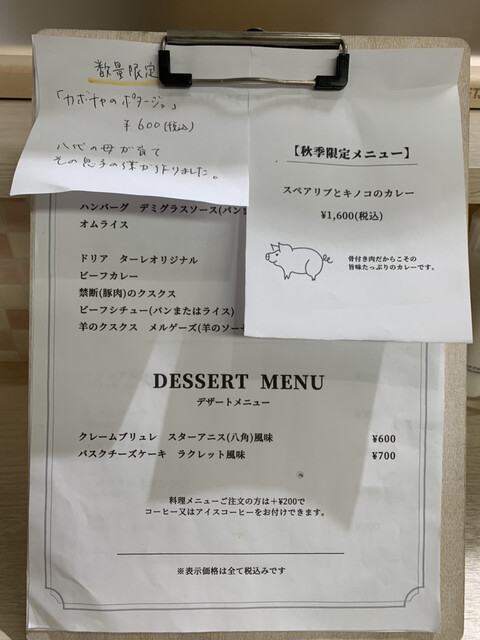 数量限定
「カボチャのポタージュ」
¥600(税込)
八代の母が育て
その息子の僕が作りました。
【秋季限定メニュー】
スペアリブとキノコのカレー
¥1,600(税込)
骨付き肉だからこその
旨味たっぷりのカレーです。
ハンバーグ デミグラスソース(パン
オムライス
ドリア ターレオリジナル
ビーフカレー
禁断(豚肉)のクスクス
ビーフシチュー(パンまたはライス)
羊のクスクス メルゲーズ(羊のソー
DESSERT MENU
デザートメニュー
クレームブリュレ スターアニス(八角)風味 ¥600
バスクチーズケーキ ラクレット風味 ¥700
料理メニューご注文の方は+¥200で
コーヒー又はアイスコーヒーをお付けできます。
※表示価格は全て税込みです